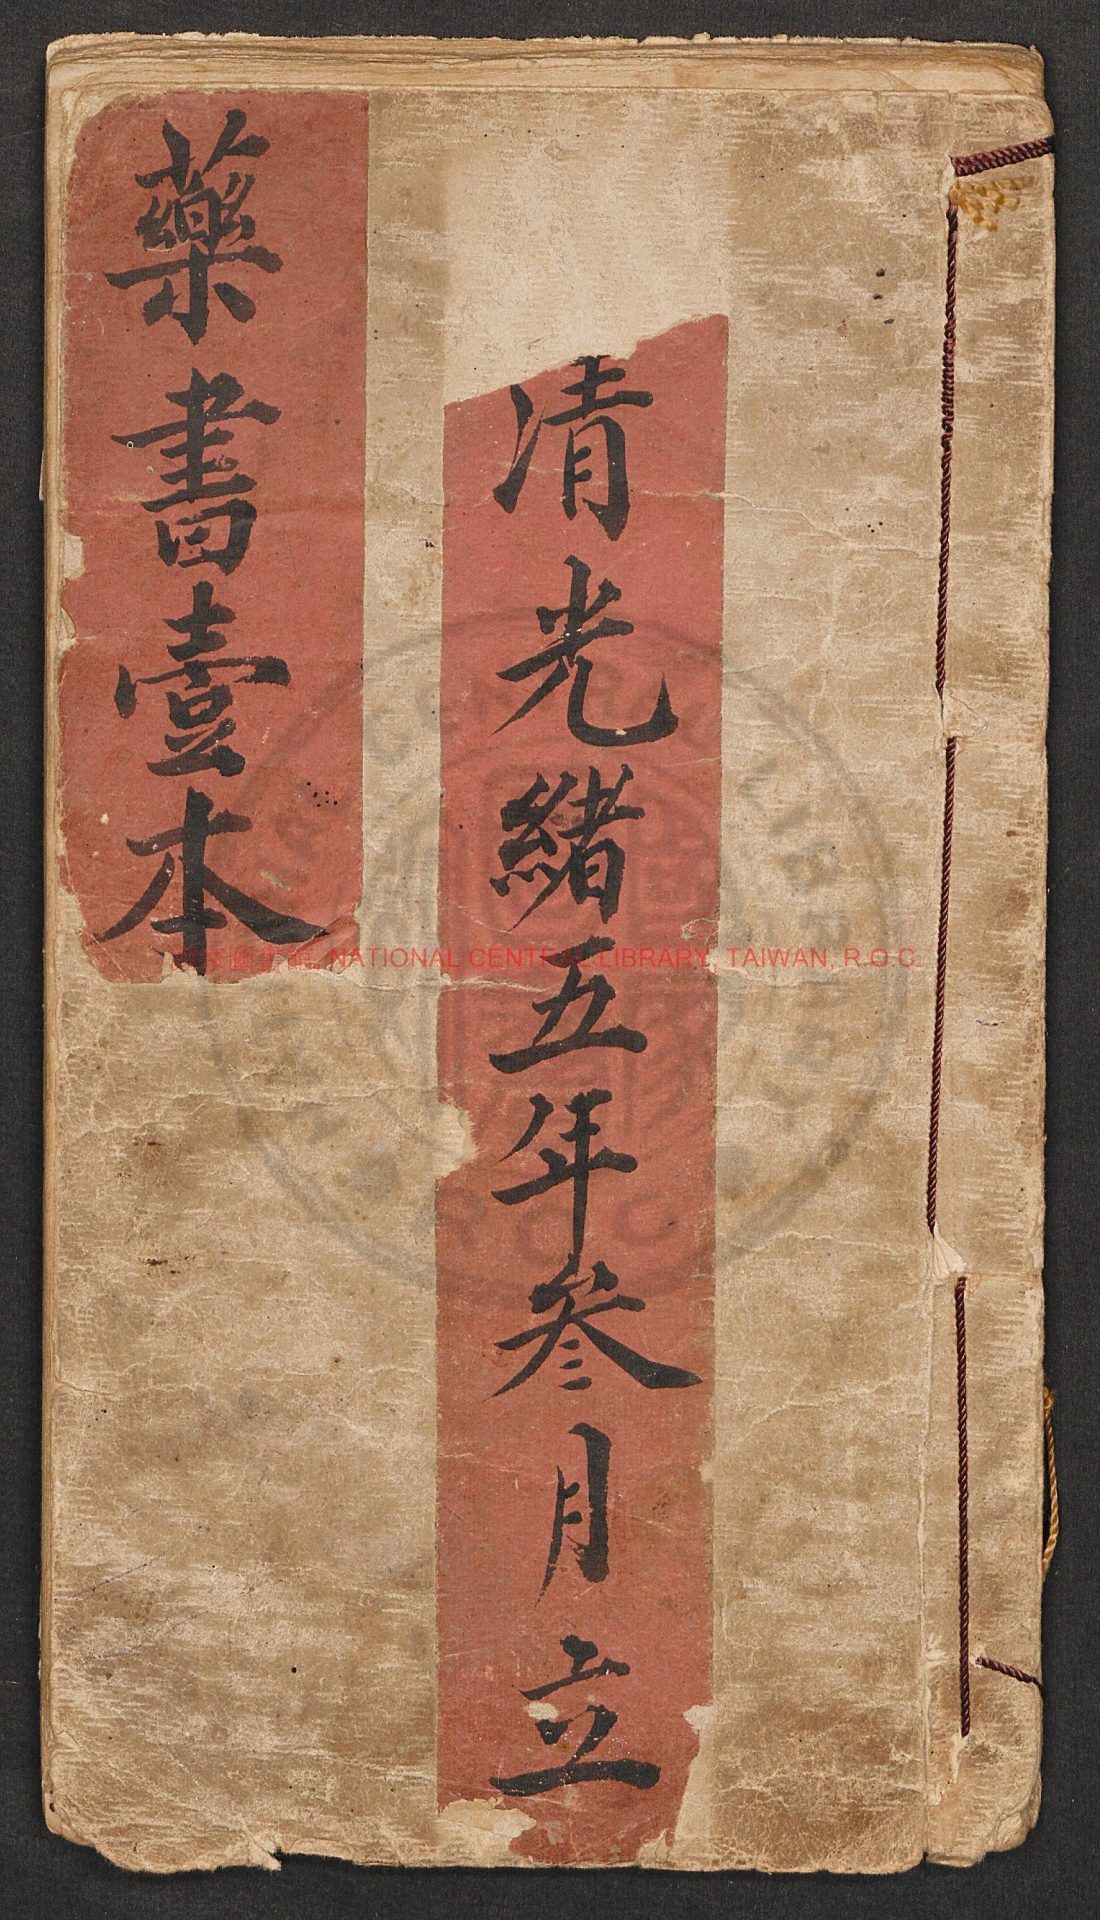 清光緒五年叄月立
藥書壹本
國家圖書館, NATIONAL CENTRAL LIBRARY, TAIWAN, R.O.C.